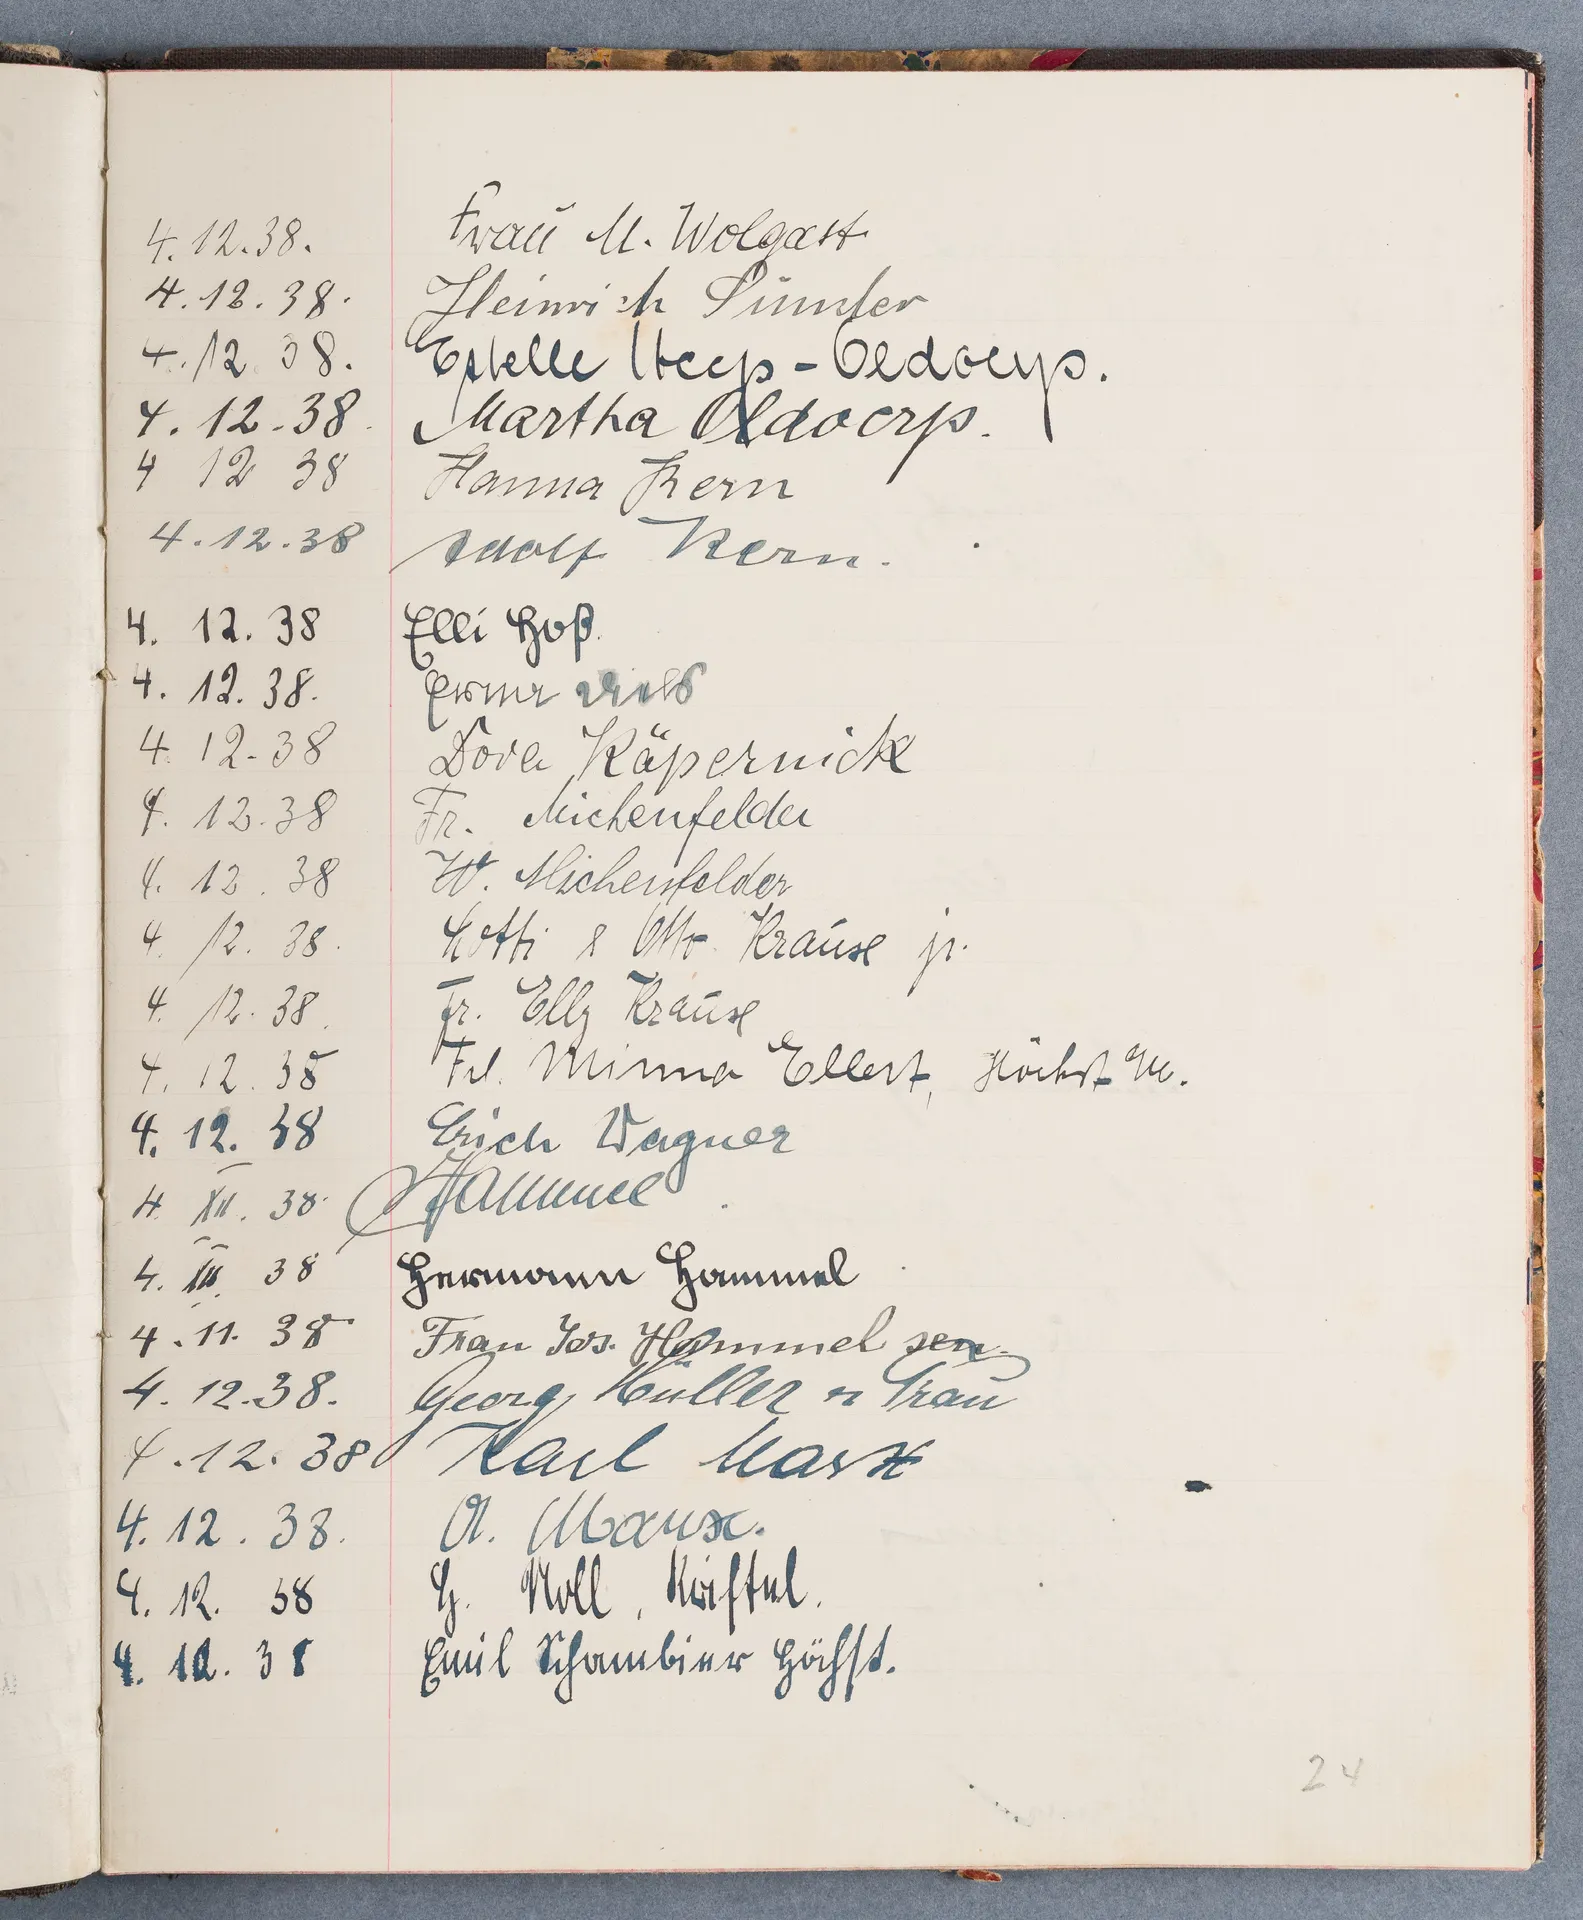 4.12.38. Frau M. Wolgast
4.12.38. Heinrich Sünder
4.12.38. Estelle Heyp-Oldoerp.
4.12.38. Martha Oldoerp.
4 12 38 Hanna Kern
4.12.38 Adolf Kern.
4. 12. 38 Elli Hoß.
4. 12. 38. Erna
4. 12.38 Dora Käpernick
4. 12.38 Fr. Michenfelder
4. 12. 38 W. Michenfelder
4. 12. 38. Lotti & Otto Krause jr.
4. 12. 38. Fr. Elly Krause
4. 12. 38 Frl. Minna Ellert, Höchst M.
4. 12. 38 Erich Wagner
4. XII. 38. Hammel
4. XII. 38 Hermann Hammel
4.11.38 Frau Jos. Hammel sen.
4.12.38. Georg Müller u Frau
4.12.38 Karl Marx
4.12.38. A. Marx.
4. 12. 38 H. Noll, Kriftel.
4. 12. 38 Emil Schambier Höchst.
24